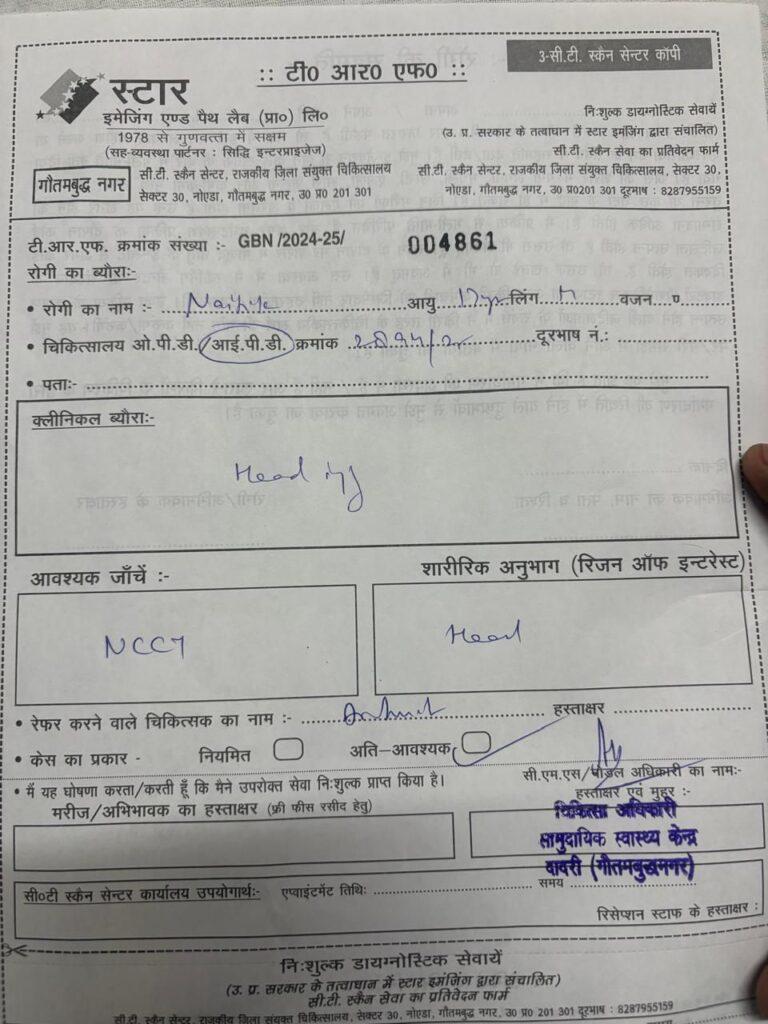 3-सी.टी. स्कैन सेन्टर कॉपी
:: टी0 आर0 एफ0 ::
स्टार
इमेजिंग एण्ड पैथ लैब (प्रा०) लि०
1978 से गुणवत्ता में सक्षम
(सह-व्यवस्था पार्टनर : सिद्धि इन्टरप्राइजेज)
नि:शुल्क डायग्नोस्टिक सेवायें
(उ. प्र. सरकार के तत्वाधान में स्टार इमंजिंग द्वारा संचालित)
सी.टी. स्कैन सेवा का प्रतिवेदन फार्म
गौतमबुद्ध नगर
सी.टी. स्कैन सेन्टर, राजकीय जिला संयुक्त चिकित्सालय
सेक्टर 30, नोएडा, गौतमबुद्ध नगर, उ0 प्र0 201 301
सी.टी. स्कैन सेन्टर, राजकीय जिला संयुक्त चिकित्सालय, सेक्टर 30,
नोएडा, गौतमबुद्ध नगर, उ0 प्र0201 301 दूरभाष : 8287955159
टी.आर.एफ. क्रमांक संख्या :- GBN /2024-25/ 004861
रोगी का ब्यौरा:-
• रोगी का नाम :- आयु 17yr लिंग M वजन
• चिकित्सालय ओ.पी.डी. / आई.पी.डी. क्रमांक दूरभाष नं.:
• पता:-
क्लीनिकल ब्यौरा:-
Head inj
आवश्यक जाँचें :-
शारीरिक अनुभाग (रिजन ऑफ इन्टरेस्ट)
NCCT
Head
• रेफर करने वाले चिकित्सक का नाम :- हस्ताक्षर
• केस का प्रकार - नियमित अति-आवश्यक
• मैं यह घोषणा करता/करती हूँ कि मैने उपरोक्त सेवा नि:शुल्क प्राप्त किया है।
मरीज/अभिभावक का हस्ताक्षर (फ्री फीस रसीद हेतु)
सी.एम.एस/नोडल अधिकारी का नाम:-
हस्ताक्षर एवं मुहर :-
चिकित्सा अधिकारी
सामुदायिक स्वास्थ्य केन्द्र
दादरी (गौतमबुद्धनगर)
सी०टी स्कैन सेन्टर कार्यालय उपयोगार्थ:- एप्वाइंटमेंट तिथि: समय
रिसेप्शन स्टाफ के हस्ताक्षर :
नि:शुल्क डायग्नोस्टिक सेवायें
(उ. प्र. सरकार के तत्वाधान में स्टार इमंजिंग द्वारा संचालित)
सी.टी. स्कैन सेवा का प्रतिवेदन फार्म
सी.टी. स्कैन सेन्टर, राजकीय जिला संयुक्त चिकित्सालय, सेक्टर 30, नोएडा, गौतमबुद्ध नगर, उ0 प्र0 201 301 दूरभाष : 8287955159